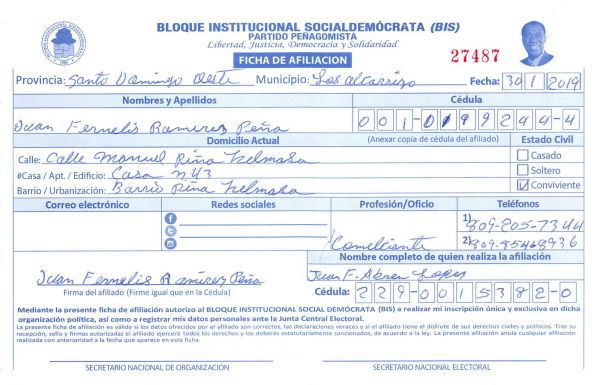 BLOQUE INSTITUCIONAL SOCIALDEMÓCRATA (BIS)
PARTIDO PEÑAGOMISTA
Libertad, Justicia, Democracia y Solidaridad
FICHA DE AFILIACION
27487
Provincia: Santo Domingo Oeste Municipio: Los alcarrizo Fecha: 30 1 2019
Nombres y Apellidos Cédula
Juan Fernelis Ramirez Peña 001-0199244-4
Domicilio Actual (Anexar copia de cédula del afiliado) Estado Civil
Calle: Calle Manuel Piña Casado
#Casa / Apt. / Edificio: Casa n 43 Soltero
Barrio / Urbanización: Barrio Piña Conviviente
Correo electrónico Redes sociales Profesión/Oficio Teléfonos
1) 809-205-7344
Comelciante 2) 809-85468936
Nombre completo de quien realiza la afiliación
Juan Fernelis Ramirez Peña Juan F. Abreu Lopez
Firma del afiliado (Firme igual que en la Cédula) Cédula: 229-0015382-0
Mediante la presente ficha de afiliación autorizo al BLOQUE INSTITUCIONAL SOCIAL DEMÓCRATA (BIS) a realizar mi inscripción única y exclusiva en dicha
organización política, así como a registrar mis datos personales ante la Junta Central Electoral.
La presente ficha de afiliación es válida si los datos ofrecidos por el afiliado son correctos, las declaraciones veraces y si el afiliado tiene el disfrute de sus derechos civiles y políticos. Tras su
recepción, sello y firmas autorizadas el afiliado ejercerá todos los derechos y los deberes estatutariamente sancionados, de acuerdo a la ley. La presente afiliación anula cualquier afiliación
realizada con anterioridad a la fecha que aparece en esta ficha.
SECRETARIO NACIONAL DE ORGANIZACIÓN SECRETARIO NACIONAL ELECTORAL